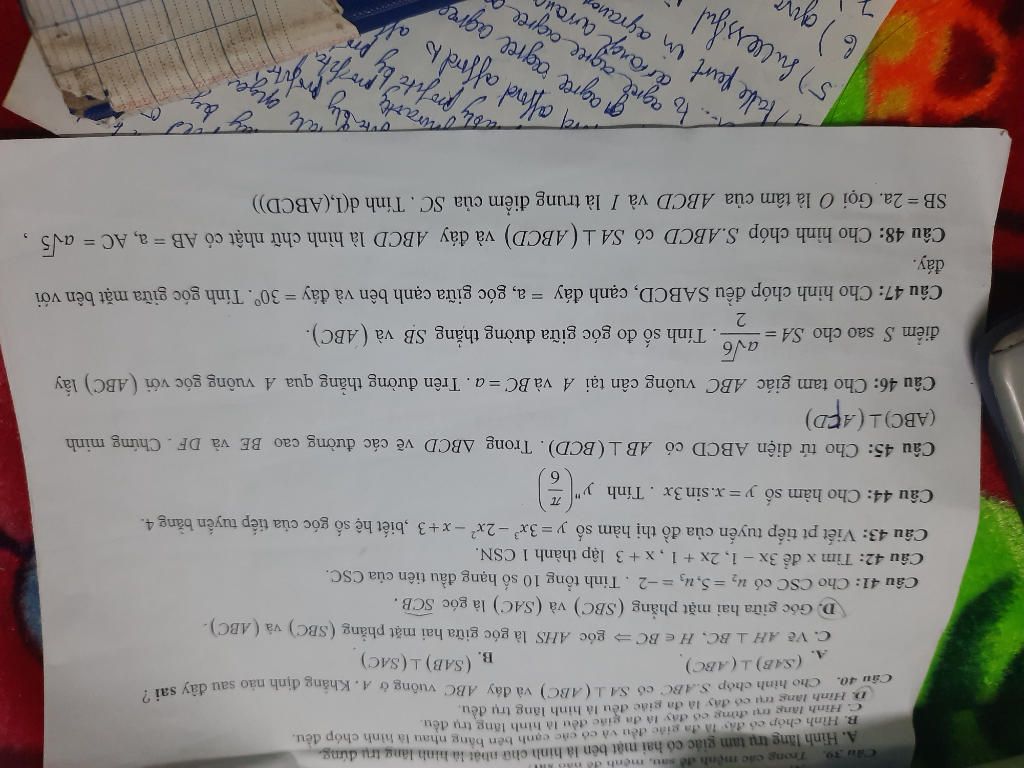 Câu 39. Trong các mệnh đề sau, mệnh đề nào sai?
A. Hình lăng trụ tam giác có hai mặt bên là hình chữ nhật là hình lăng trụ đứng.
B. Hình chóp có đáy là đa giác đều và có các cạnh bên bằng nhau là hình chóp đều.
C. Hình lăng trụ đứng có đáy là đa giác đều là hình lăng trụ đều.
D. Hình lăng trụ có đáy là đa giác đều là hình lăng trụ đều.
Câu 40. Cho hình chóp S.ABC có SA ⊥ (ABC) và đáy ABC vuông ở A. Khẳng định nào sau đây sai ?
A. (SAB) ⊥ (ABC). B. (SAB) ⊥ (SAC).
C. Vẽ AH ⊥ BC, H ∈ BC ⇒ góc AHS là góc giữa hai mặt phẳng (SBC) và (ABC).
D. Góc giữa hai mặt phẳng (SBC) và (SAC) là góc SCB.
Câu 41: Cho CSC có u₂ = 5, u₃ = −2. Tính tổng 10 số hạng đầu tiên của CSC.
Câu 42: Tìm x để 3x − 1, 2x + 1, x + 3 lập thành 1 CSN.
Câu 43: Viết pt tiếp tuyến của đồ thị hàm số y = 3x³ − 2x² − x + 3, biết hệ số góc của tiếp tuyến bằng 4.
Câu 44: Cho hàm số y = x.sin3x. Tính y"(π/6)
Câu 45: Cho tứ diện ABCD có AB ⊥ (BCD). Trong ΔBCD vẽ các đường cao BE và DF. Chứng minh
(ABC) ⊥ (ACD)
Câu 46: Cho tam giác ABC vuông cân tại A và BC = a. Trên đường thẳng qua A vuông góc với (ABC) lấy
điểm S sao cho SA = a√6/2. Tính số đo góc giữa đường thẳng SB và (ABC).
Câu 47: Cho hình chóp đều SABCD, cạnh đáy = a, góc giữa cạnh bên và đáy = 30⁰. Tính góc giữa mặt bên với
đáy.
Câu 48: Cho hình chóp S.ABCD có SA ⊥ (ABCD) và đáy ABCD là hình chữ nhật có AB = a, AC = a√5,
SB = 2a. Gọi O là tâm của ABCD và I là trung điểm của SC. Tính d(I,(ABCD))
5) Successful
6) give
take part in